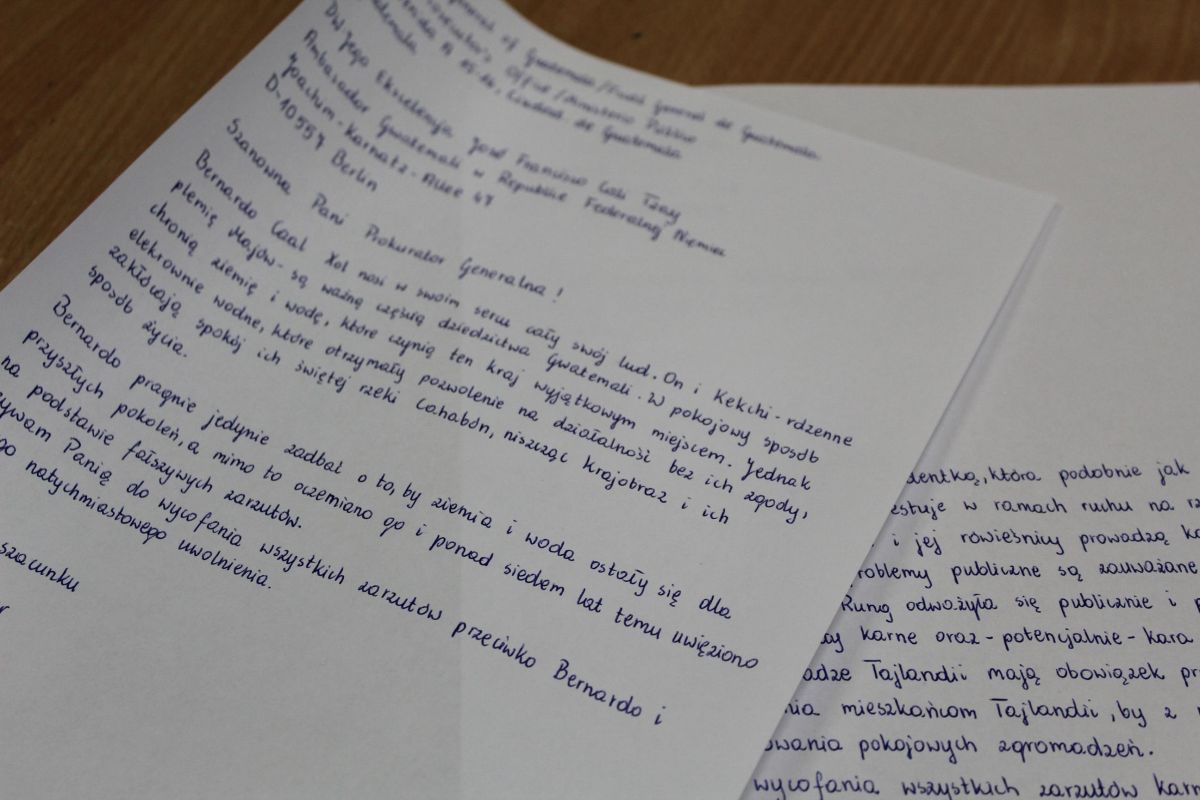 of Guatemala / Fiscal General de Guatemala
Office / Ministerio Público
15-16, Ciudad de Guatemala
DW Jego Ekscelencja José Francisco Cali Tzay
Ambasador Gwatemali w Republice Federalnej Niemiec
Joachim-Karnatz-Allee 47
D-10557 Berlin
Szanowna Pani Prokurator Generalna!
Bernardo Caal Xol nosi w swoim sercu cały swój lud. On i Kekchi - rdzenne
plemię Majów - są ważną częścią dziedzictwa Gwatemali. W pokojowy sposób
chronią ziemię i wodę, które czynią ten kraj wyjątkowym miejscem. Jednak
elekrownie wodne, które otrzymały pozwolenie na działalność bez ich zgody,
zakłócają spokój ich świętej rzeki Cahabón, niszcząc krajobraz i ich
sposób życia.
Bernardo pragnie jedynie zadbać o to, by ziemia i woda ostały się dla
przyszłych pokoleń, a mimo to oczerniano go i ponad siedem lat temu uwięziono
na podstawie fałszywych zarzutów.
zywam Panią do wycofania wszystkich zarzutów przeciwko Bernardo i
go natychmiastowego uwolnienia.
szacunku
dentką, która podobnie jak
estuje w ramach ruchu na rz
i jej rówieśnicy prowadzą ka
problemy publiczne są zauważane
Rung odważyła się publicznie i p
karne oraz - potencjalnie - kara
adze Tajlandii mają obowiązek pr
nia mieszkańcom Tajlandii, by z
owania pokojowych zgromadzeń.
wycofania wszystkich zarzutów karn